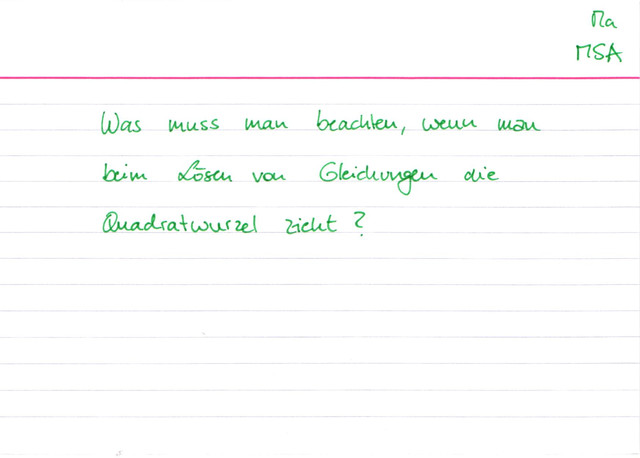 Ma
MSA
Was muss man beachten, wenn man
beim Lösen von Gleichungen die
Quadratwurzel zieht?